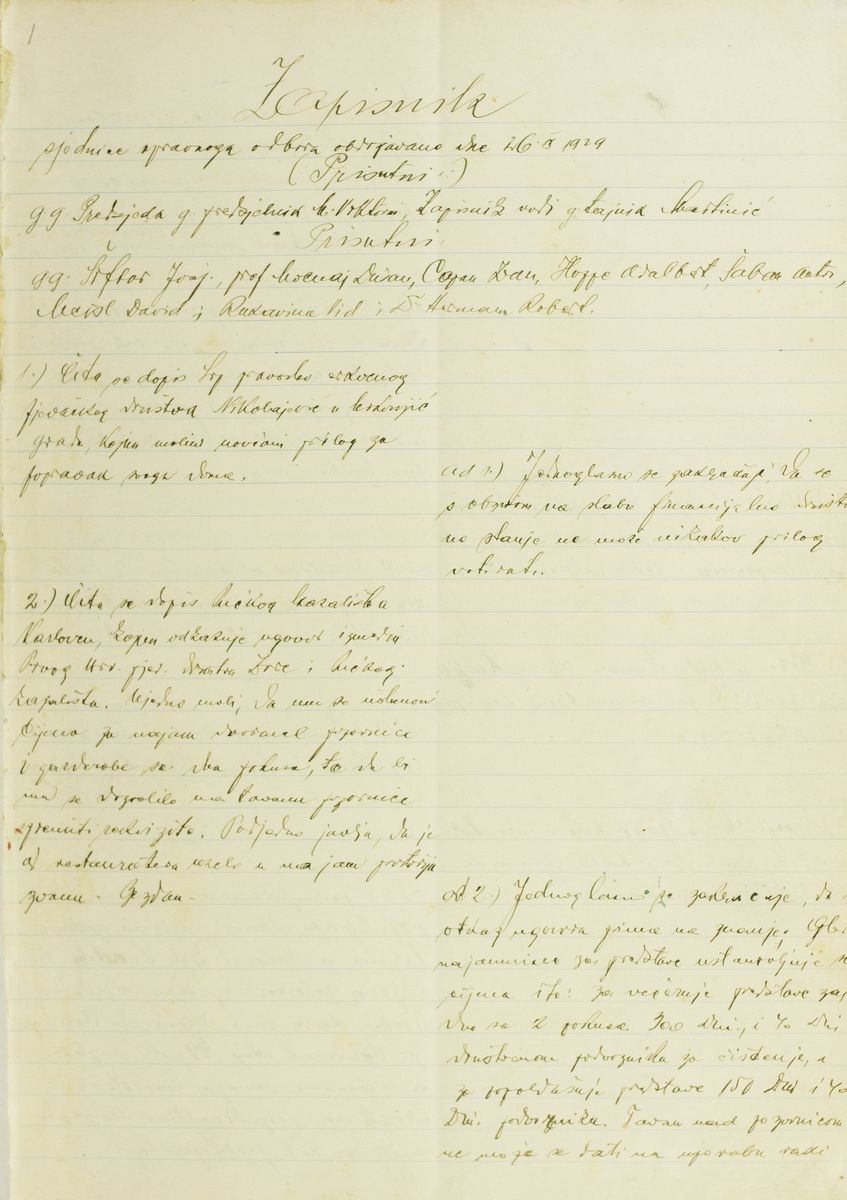 1
Zapisnik
sjednice upravnoga odbora obdržavane dne 26. 1929
(Prisutni:)
gg. Predsjeda g. predsjednik Zapisnik vodi g. tajnik Martinić
Prisutni:
gg. Josip, prof. Dušan, Capan Ivan, Hoppe Adalbert, Šaban Antun,
David i Rukavina Vid i Dr. Hermann Robert.
1.) Čita se dopis Srp. pravoslav. crkvenog
pjevačkog društva Nikolajević u
gradu, kojim moli novčani prilog za
popravak svoga doma.
ad 1.) Jednoglasno se zaključuje, da se
s obzirom na slabo financijalno društve
no stanje ne može nikakov prilog
votirati.
2.) Čita se dopis Kazališta
Karlovcu, kojim odkazuje ugovor između
Prvog Hrv. pjev. društva Zore i
Kazališta. Ujedno moli, da mu se ustanovi
cijena za najam dvorane pozornice
i garderobe sa dva pokusa, te da bi
mu se dozvolilo na tavanu pozornice
spremiti rekvizite. Podjedno javlja, da je
od restauratera uzelo u najam prostoriju
zvanu
ad 2.) Jednoglasno se zaključuje, da
otkaz ugovora prima na znanje. Glede
najamnine za predstave ustanovljuje se
cijena i to: za večernje predstave zaj
dno sa 2 pokusa 300 Din., i 40 Din
društvenom podvorniku za čišćenje, a
za popoldašnje predstave 150 Din i 40
Din. podvorniku. Tavan nad pozornicom
ne može se dati na uporabu radi